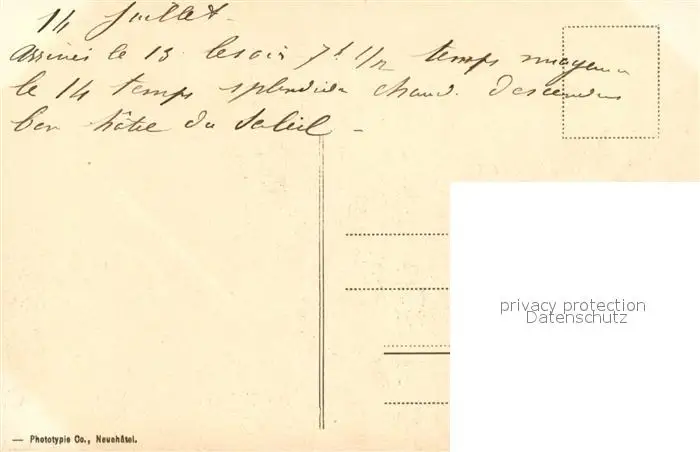 14 Juillet.
arrivés le 13 le soir 7h 1/2 temps moyen
le 14 temps splendide chaud. descendus
bon hôtel du Soleil -
privacy protection
Datenschutz
— Phototypie Co., Neuchâtel.